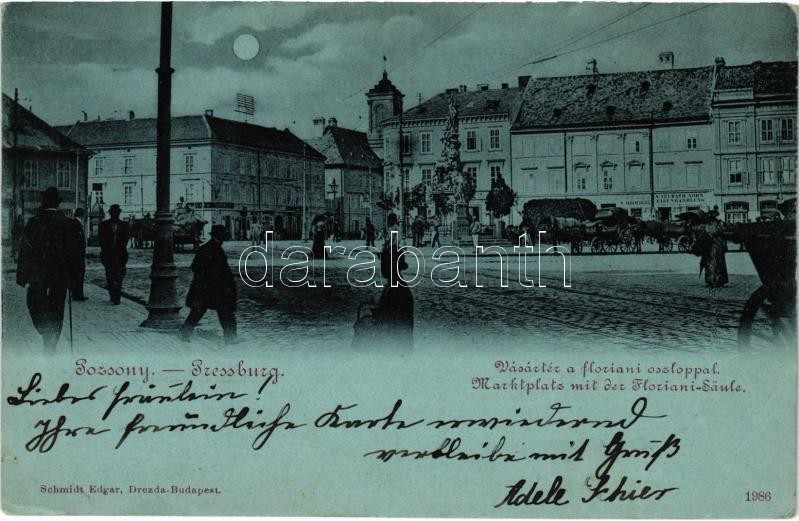 V. NEURATH SOHN
EISENHANDLUNG
darabanth
Pozsony. — Pressburg.
Vásártér a floriani oszloppal.
Marktplatz mit der Floriani-Säule.
Liebes Fräulein!
Ihre freundliche Karte erwiedernd
verbleibe mit Gruß
Adele Schier
Schmidt Edgar, Drezda-Budapest.
1986